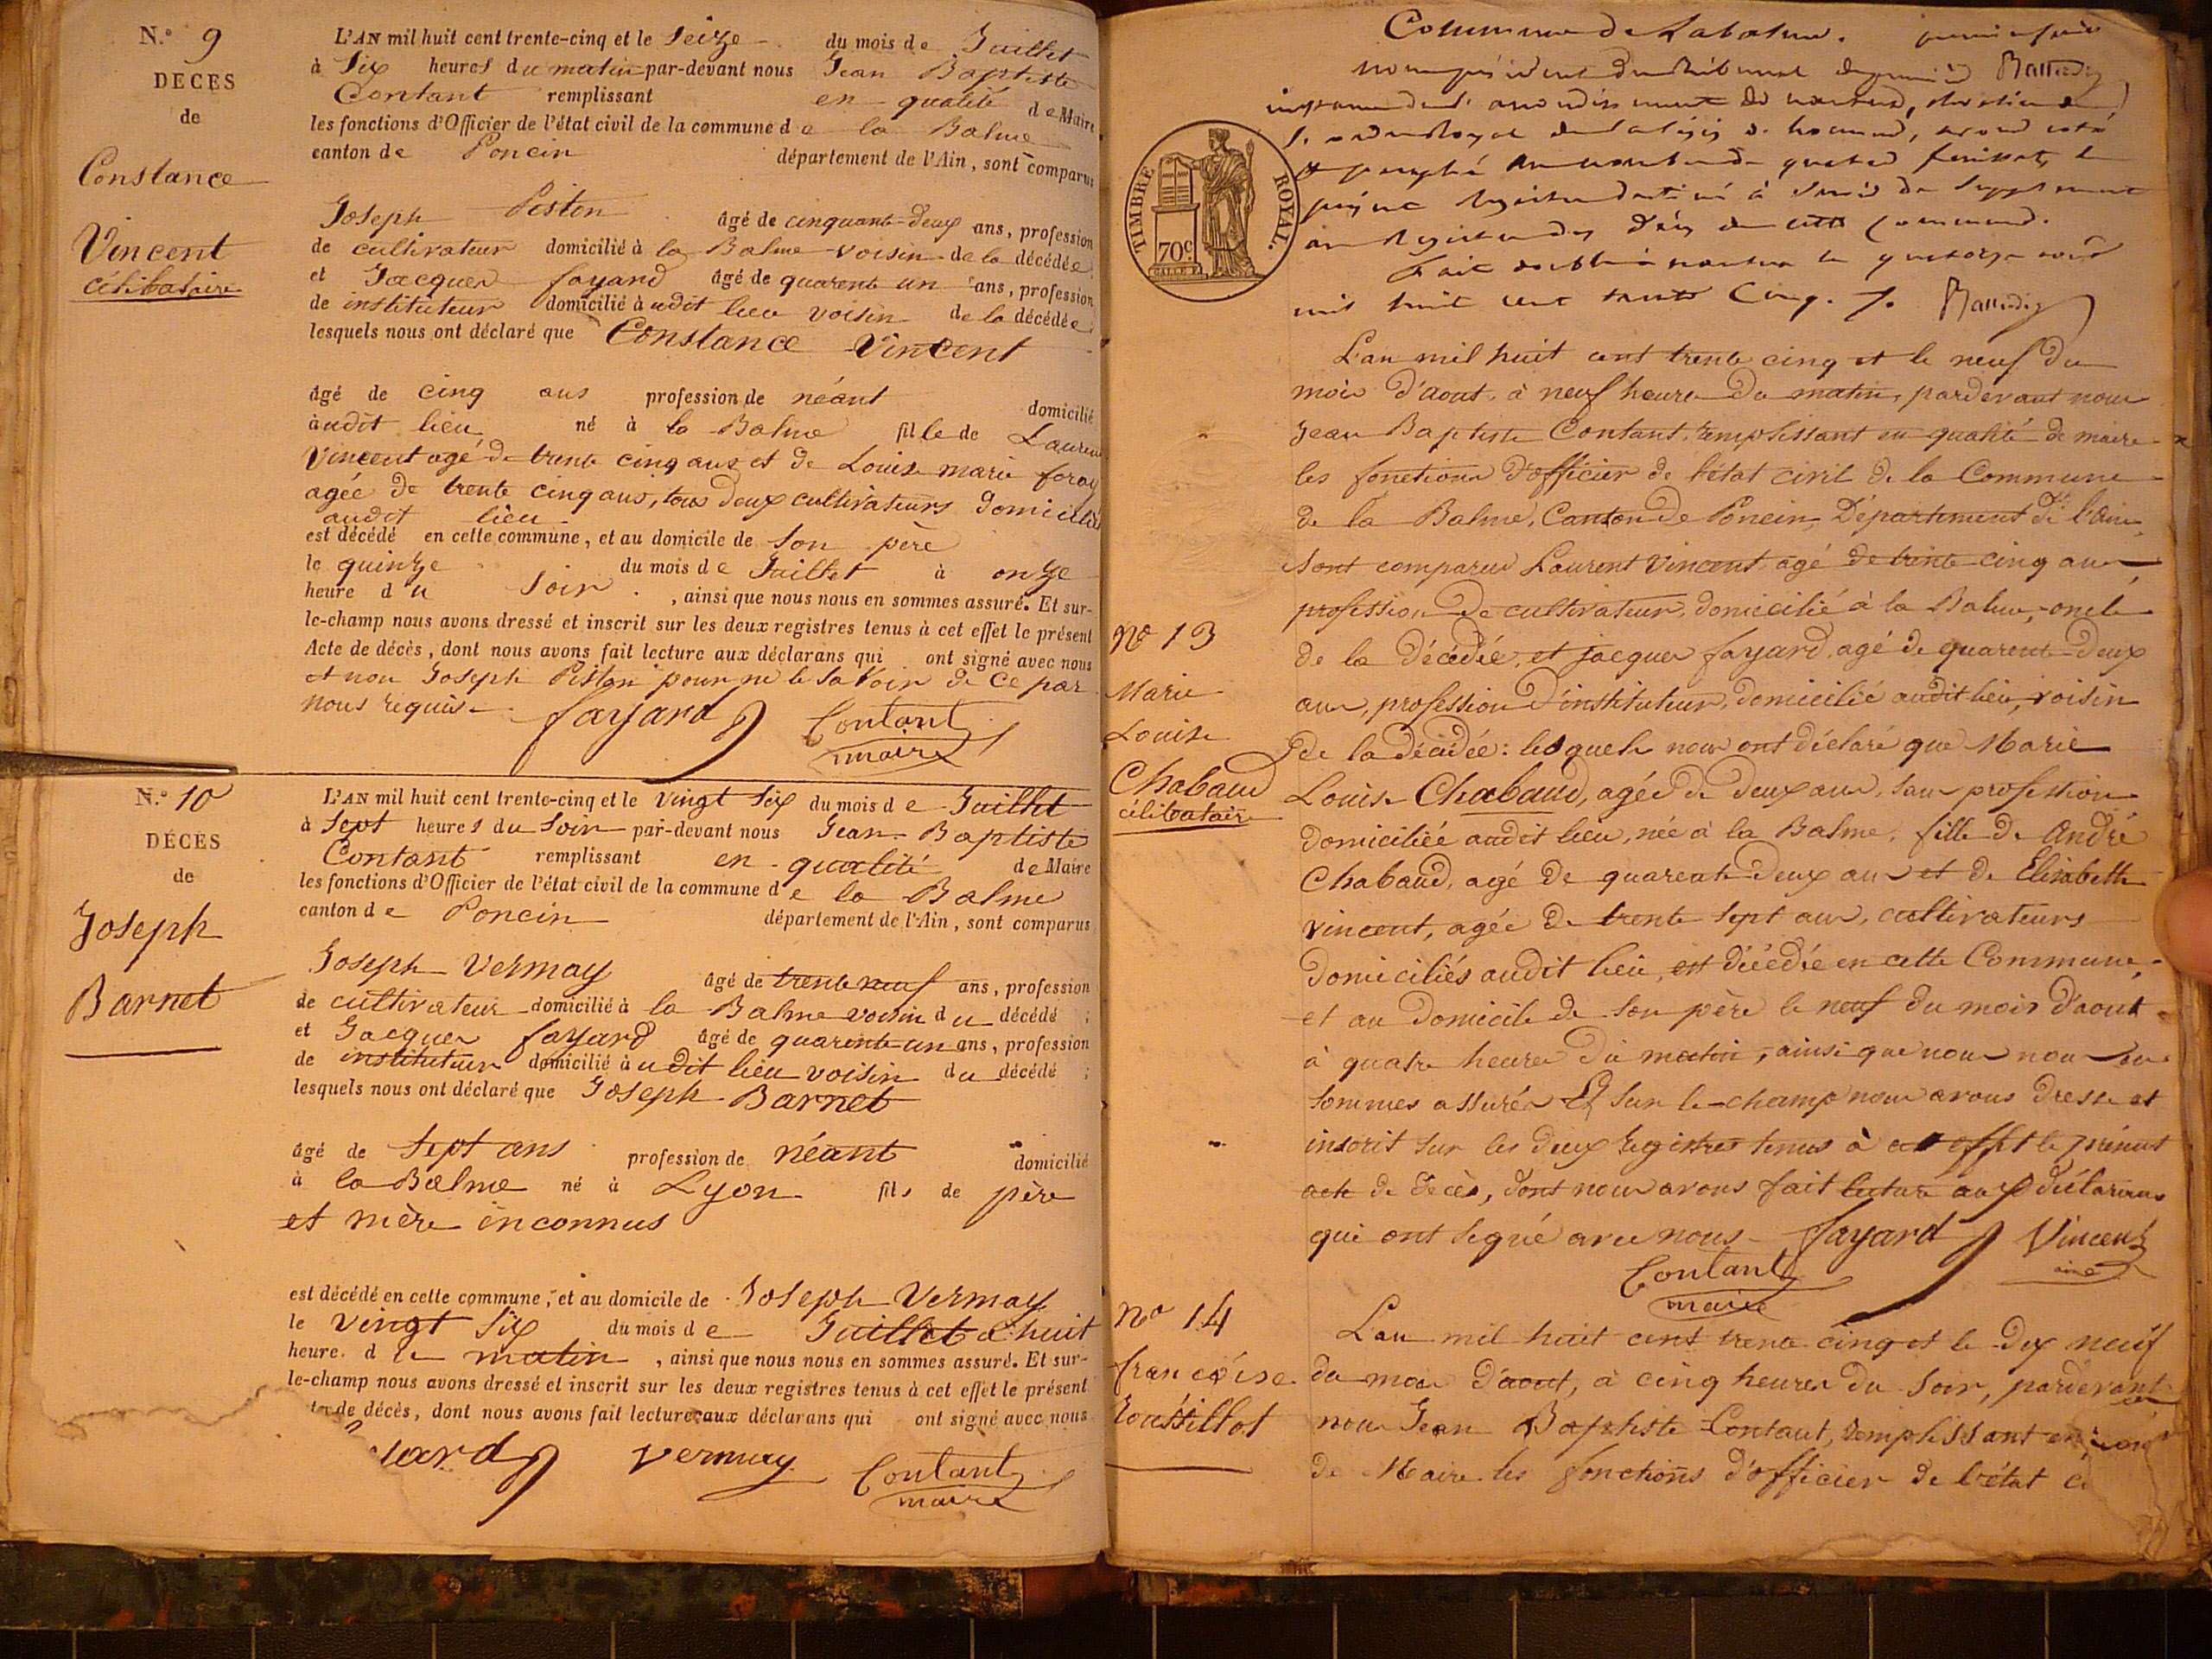 N.º 9
DECES
de
Constance
Vincent
célibataire
L'AN mil huit cent trente-cinq et le Seize du mois de Juillet
à Six heures du matin par-devant nous Jean Baptiste
Contant remplissant en qualité de Maire
les fonctions d'Officier de l'état civil de la commune de la Balme
canton de Poncin département de l'Ain, sont comparus
Joseph Piston âgé de cinquante-deux ans, profession
de cultivateur domicilié à la Balme voisin de la décédée
et Jacques fayard âgé de quarente un ans, profession
de instituteur domicilié audit lieu voisin de la décédée
lesquels nous ont déclaré que Constance Vincent
âgé de cinq ans profession de néant domicilié
audit lieu né à la Balme fille de Laurent
Vincent agé de trente cinq ans et de Louise marie foray
agée de trente cinq ans, tous deux cultivateurs domiciliés
audit lieu
est décédé en cette commune, et au domicile de Son père
le quinze du mois de Juillet à onze
heure du Soir, ainsi que nous nous en sommes assuré. Et sur-
le-champ nous avons dressé et inscrit sur les deux registres tenus à cet effet le présent
Acte de décès, dont nous avons fait lecture aux déclarans qui ont signé avec nous
et non Joseph Piston pour ne le Savoir de ce par
nous requis
fayard Contant
maire
N.º 10
DÉCÈS
de
Joseph
Barnet
L'AN mil huit cent trente-cinq et le vingt Six du mois de Juillet
à Sept heures du Soir par-devant nous Jean Baptiste
Contant remplissant en qualité de Maire
les fonctions d'Officier de l'état civil de la commune de la Balme
canton de Poncin département de l'Ain, sont comparus
Joseph Vermay âgé de trente neuf ans, profession
de cultivateur domicilié à la Balme voisin du décédé ;
et Jacques fayard âgé de quarente un ans, profession
de instituteur domicilié audit lieu voisin du décédé ;
lesquels nous ont déclaré que Joseph Barnet
âgé de Sept ans profession de néant domicilié
à la Balme né à Lyon fils de père
et mère inconnus
est décédé en cette commune, et au domicile de Joseph Vermay
le vingt Six du mois de Juillet à huit
heure. du matin, ainsi que nous nous en sommes assuré. Et sur-
le-champ nous avons dressé et inscrit sur les deux registres tenus à cet effet le présent
te de décès, dont nous avons fait lecture aux déclarans qui ont signé avec nous
yard Vermay Contant
maire
Commune de Labalme.
TIMBRE ROYAL.
70 c.
mil huit cent trente Cinq.
L'an mil huit cent trente cinq et le neuf du
mois d'aout, à neuf heures du matin, pardevant nous
Jean Baptiste Contant, remplissant en qualité de maire
les fonctions d'officier de l'état civil de la Commune
de la Balme, Canton de Poncin, Département de l'ain,
Sont comparus Laurent Vincent agé de trente cinq ans,
profession de cultivateur, domicilié à la Balme, oncle
de la décédée, et jacques fayard, agé de quarente-deux
ans, profession d'instituteur, domicilié audit lieu, voisin
de la décédée : lesquels nous ont déclaré que Marie
Louise Chabaud, agée de deux ans, Sans profession
domiciliée audit lieu, née à la Balme, fille de André
Chabaud, agé de quarente deux ans et de Elisabeth
vincent, agée de trente Sept ans, cultivateurs
domiciliés audit lieu, est décédée en cette Commune,
et au domicile de Son père le neuf du mois d'aout
à quatre heures du matin, ainsi que nous nous en
Sommes assurés Et Sur le-champ nous avons dressé et
inscrit Sur les deux registres tenus à cet effet le présent
acte de décès, dont nous avons fait lecture aux déclarans
qui ont Signé avec nous fayard Vincent
Contant
maire
Nº 13
Marie
Louise
Chabaud
célibataire
nº 14
françoise
roussillot
L'an mil huit cent trente cinq et le dix neuf
du mois d'aout, à cinq heures du Soir, pardevant
nous Jean Baptiste Contant, remplissant en
de Maire les fonctions d'officier de l'état ci